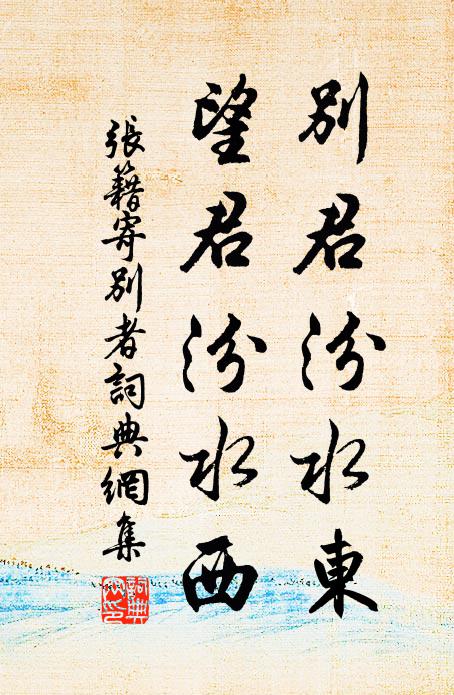 別君汾水東
望君汾水西
張籍寄別者詞典網集